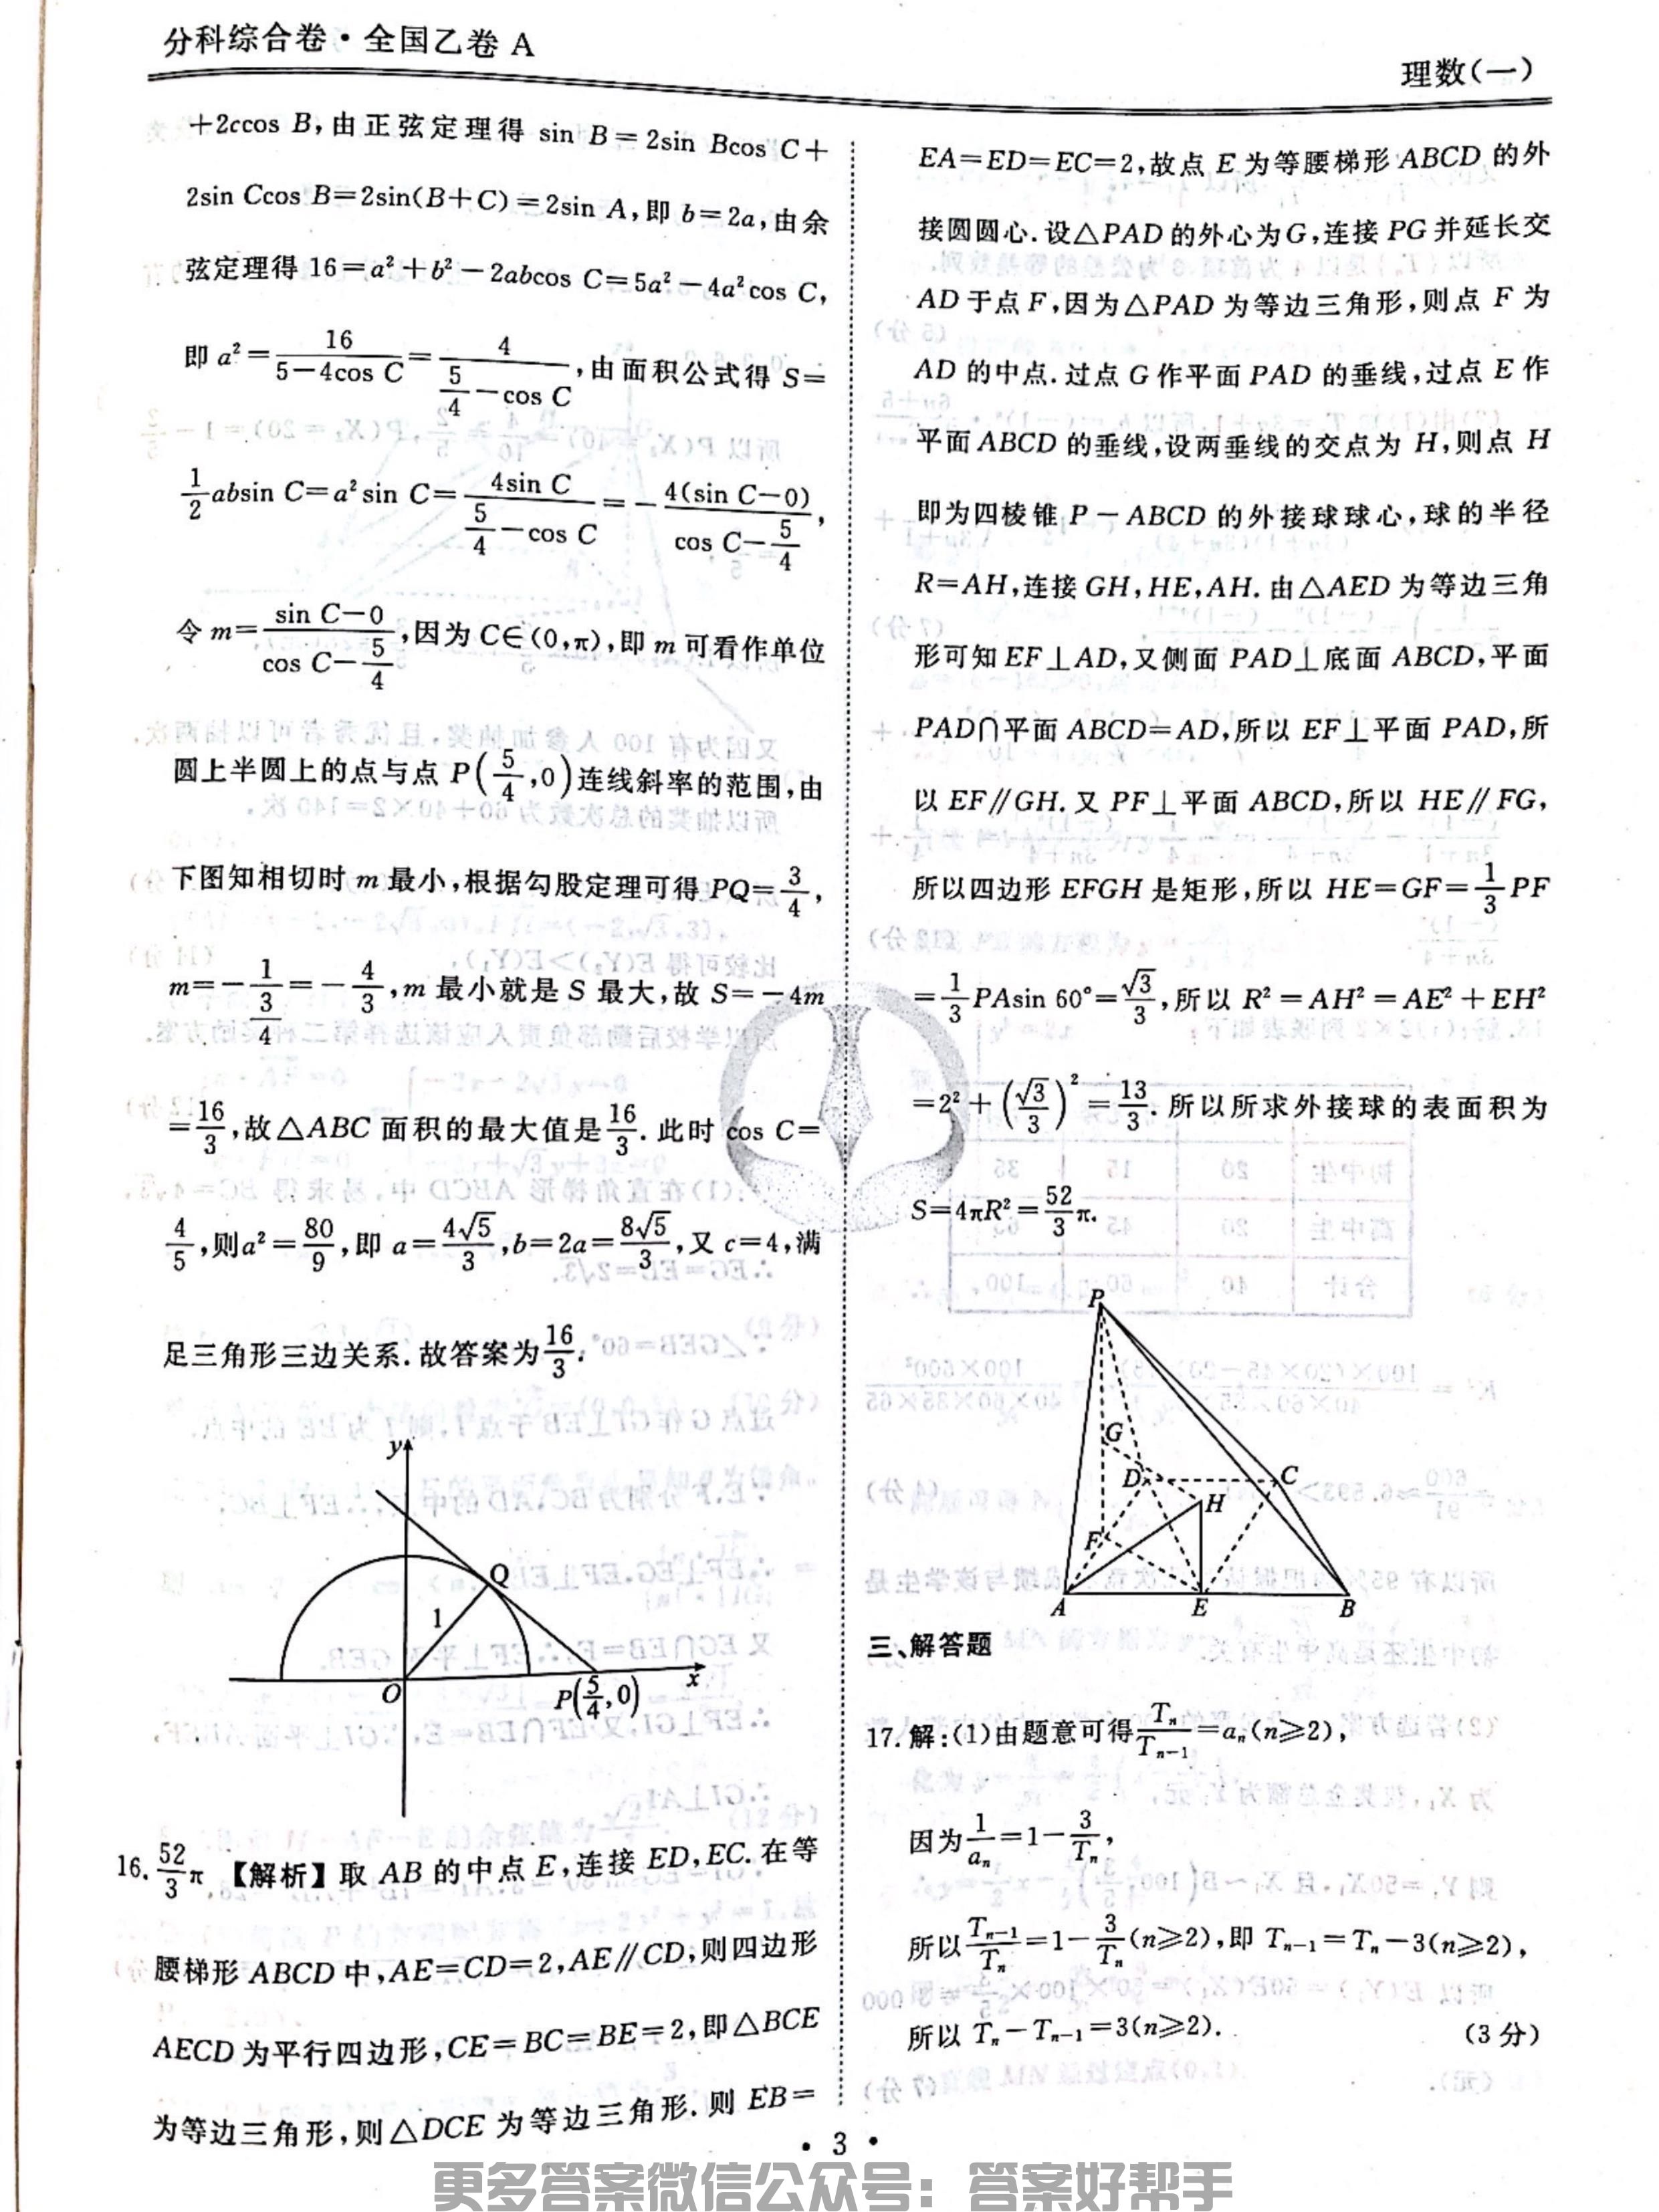 分科综合卷·全国乙卷 A
理数(一)
+2ccos B,由正弦定理得 sin B=2sin Bcos C+
2sin Ccos B=2sin(B+C)=2sin A,即 b=2a,由余
弦定理得 16=a²+b²-2abcos C=5a²-4a²cos C,
即 a²=16/(5-4cos C)=4/(5/4-cos C),由面积公式得 S=
1/2absin C=a²sin C=4sin C/(5/4-cos C)=-4(sin C-0)/(cos C-5/4),
令 m=(sin C-0)/(cos C-5/4),因为 C∈(0,π),即 m 可看作单位
圆上半圆上的点与点 P(5/4,0)连线斜率的范围,由
下图知相切时 m 最小,根据勾股定理可得 PQ=3/4,
m=-1/(3/4)=-4/3,m 最小就是 S 最大,故 S=-4m
=16/3,故△ABC 面积的最大值是16/3.此时 cos C=
4/5,则a²=80/9,即 a=4√5/3,b=2a=8√5/3,又 c=4,满
足三角形三边关系.故答案为16/3.
y
Q
1
O
P(5/4,0)
x
16.52/3π 【解析】取 AB 的中点 E,连接 ED,EC.在等
腰梯形 ABCD 中,AE=CD=2,AE∥CD,则四边形
AECD 为平行四边形,CE=BC=BE=2,即△BCE
为等边三角形,则△DCE 为等边三角形.则 EB=
EA=ED=EC=2,故点 E 为等腰梯形 ABCD 的外
接圆圆心.设△PAD 的外心为G,连接 PG 并延长交
AD 于点 F,因为△PAD 为等边三角形,则点 F 为
AD 的中点.过点 G 作平面 PAD 的垂线,过点 E 作
平面 ABCD 的垂线,设两垂线的交点为 H,则点 H
即为四棱锥 P-ABCD 的外接球球心,球的半径
R=AH,连接 GH,HE,AH.由△AED 为等边三角
形可知 EF⊥AD,又侧面 PAD⊥底面 ABCD,平面
PAD∩平面 ABCD=AD,所以 EF⊥平面 PAD,所
以 EF∥GH.又 PF⊥平面 ABCD,所以 HE∥FG,
所以四边形 EFGH 是矩形,所以 HE=GF=1/3PF
=1/3PAsin 60°=√3/3,所以 R²=AH²=AE²+EH²
=2²+(√3/3)²=13/3.所以所求外接球的表面积为
S=4πR²=52/3π.
P
G
D
C
H
F
A
E
B
三、解答题
17.解:(1)由题意可得Tₙ/Tₙ₋₁=aₙ(n≥2),
因为1/aₙ=1-3/Tₙ,
所以Tₙ₋₁/Tₙ=1-3/Tₙ(n≥2),即 Tₙ₋₁=Tₙ-3(n≥2),
所以 Tₙ-Tₙ₋₁=3(n≥2). (3 分)
·3·
更多答案微信公众号：答案好帮手